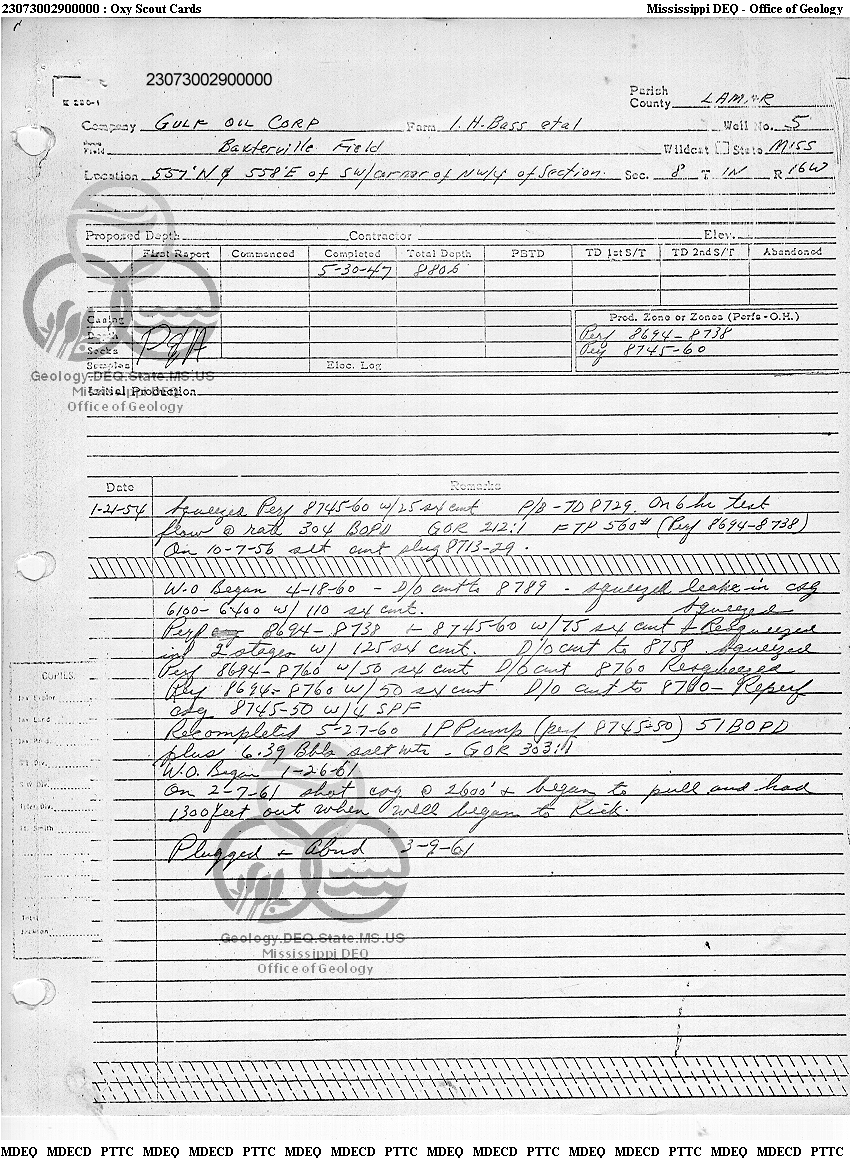 23073002900000 : Oxy Scout Cards Mississippi DEQ - Office of Geology
23073002900000
Parish
County LAMAR
Company GULF OIL CORP Farm I.H. Bass etal Well No. 5
Field Baxterville Field Wildcat State MISS
Location 557'N & 558'E of SW/corner of NW/4 of Section. Sec. 8 T 1N R 16W
Proposed Depth Contractor Elev.
First Report Commenced Completed Total Depth PBTD TD 1st S/T TD 2nd S/T Abandoned
5-30-47 8806
Casing Prod. Zone or Zones (Perfs - O.H.)
Depth Perf 8694-8738
Sacks P&A Perf 8745-60
Samples Elec. Log
Geology.DEQ.State.MS.US
Mississippi DEQ
Initial Production
Office of Geology
Date Remarks
1-21-54 Squeezed Perf 8745-60 w/25 sx cmt P/B-TD 8729. On 6 hr test
flow @ rate 304 BOPD GOR 212:1 FTP 560# (Perf 8694-8738)
On 10-7-56 set cmt plug 8713-29.
W.O Began 4-18-60 - D/O cmt to 8789 - squeezed leaks in csg
6100-6400 w/ 110 sx cmt. squeezed
Perf 8694-8738 & 8745-60 w/75 sx cmt & Resqueezed
in 2 stages w/ 125 sx cmt. D/O cmt to 8758 squeezed
Perf 8694-8760 w/50 sx cmt D/O cmt 8760 Resqueezed
Perf 8694-8760 w/50 sx cmt D/O cmt to 8760 - Reperf
csg 8745-50 w/4 SPF
Recompleted 5-27-60 IP Pump (perf 8745-50) 51 BOPD
plus 6.39 Bbls salt wtr - GOR 303:1
W.O. Began 1-26-61
On 2-7-61 shot csg @ 2600' & began to pull and had
1300 feet out when well began to Kick.
Plugged & Abnd 3-9-61
COPIES
Geology.DEQ.State.MS.US
Mississippi DEQ
Office of Geology
MDEQ MDECD PTTC MDEQ MDECD PTTC MDEQ MDECD PTTC MDEQ MDECD PTTC MDEQ MDECD PTTC MDEQ MDECD PTTC